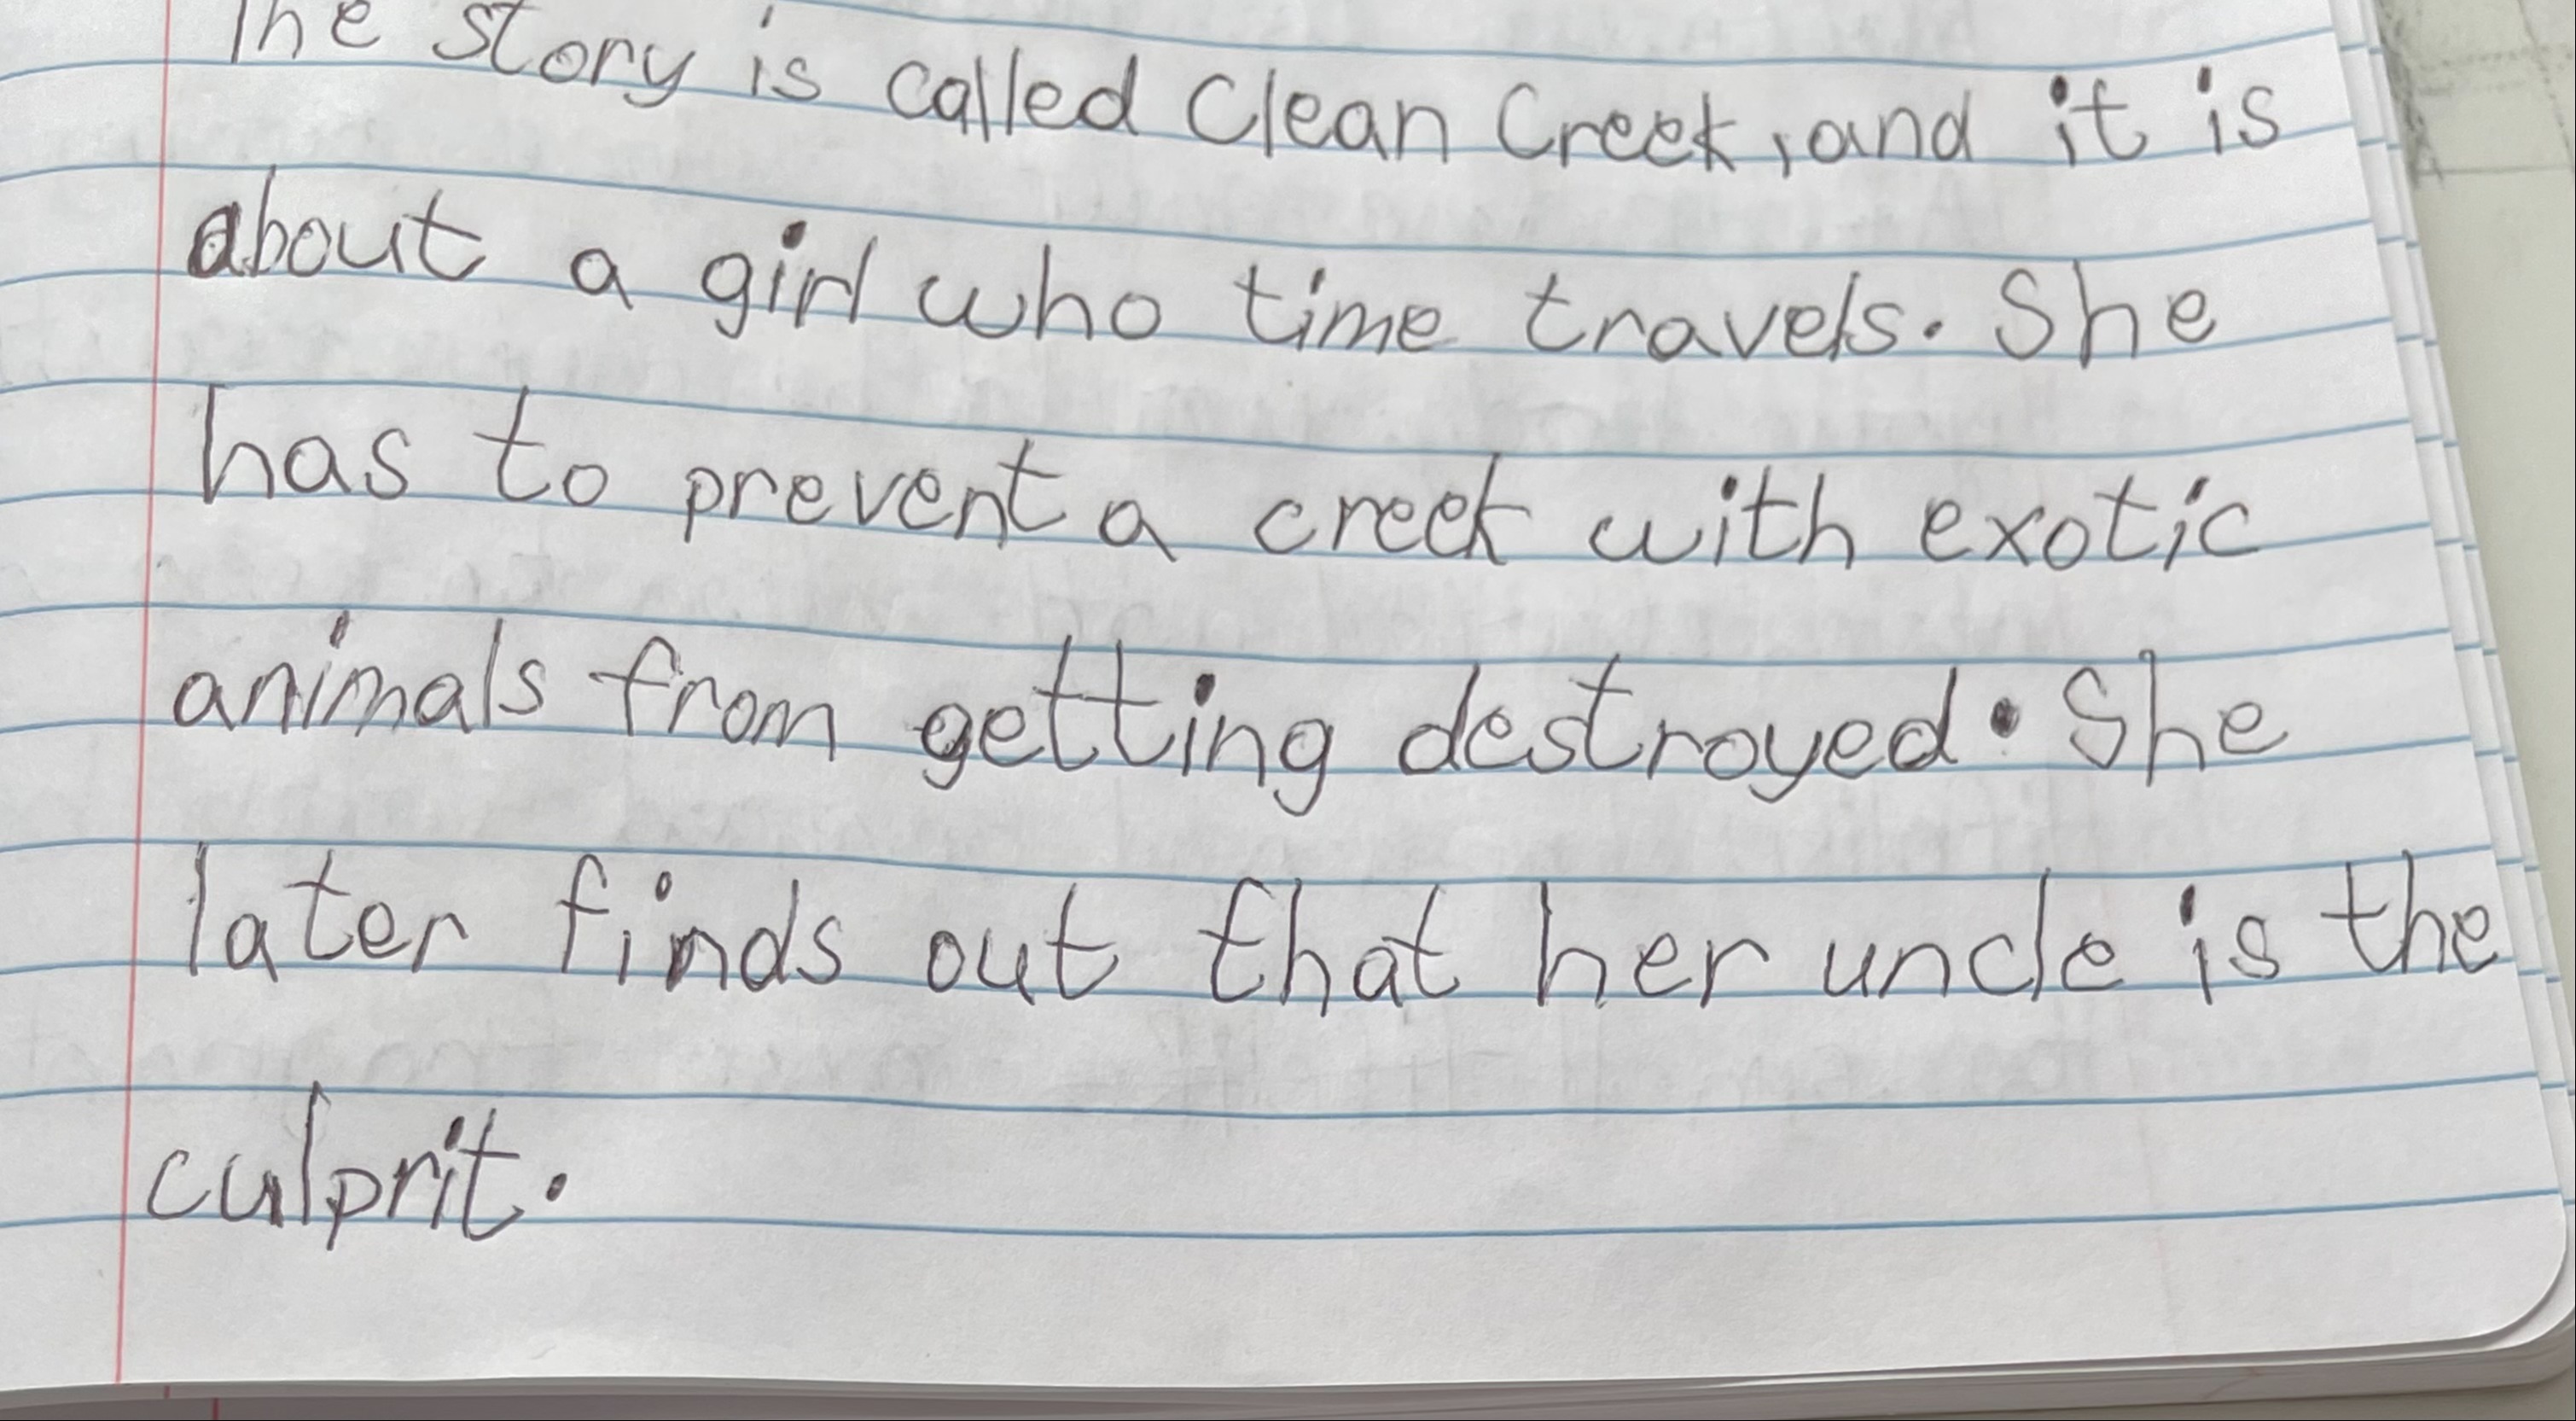 The story is called Clean Creek, and it is
about a girl who time travels. She
has to prevent a creek with exotic
animals from getting destroyed. She
later finds out that her uncle is the
culprit.